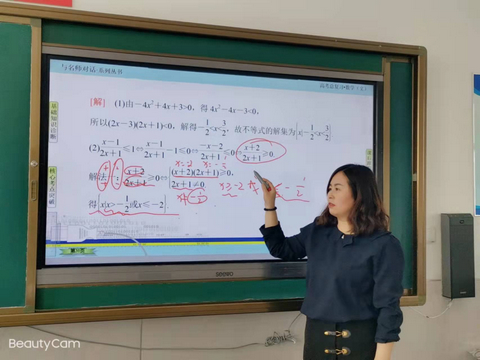 与名师对话·系列丛书
高考总复习·数学（文）
基础知识诊断
核心考点突破
[解] (1)由-4x²+4x+3>0，得4x²-4x-3<0，
所以(2x-3)(2x+1)<0，解得-1/2<x<3/2，故不等式的解集为{x|-1/2<x<3/2}
(2)(x-1)/(2x+1)≤1⇔(x-1)/(2x+1)-1≤0⇔(-x-2)/(2x+1)≤0⇔(x+2)/(2x+1)≥0.
x=-2
解法一：(x+2)/(2x+1)≥0⇔{(x+2)(2x+1)≥0，
2x+1≠0
得{x|x>-1/2或x≤-2}
BeautyCam